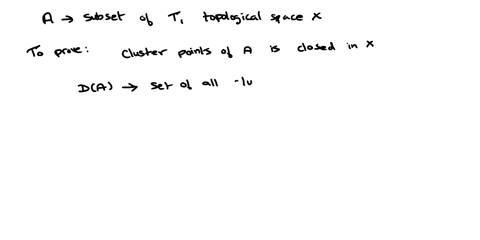 A → subset of T₁ topological space X
To prove: Cluster points of A is closed in X
D(A) → set of all